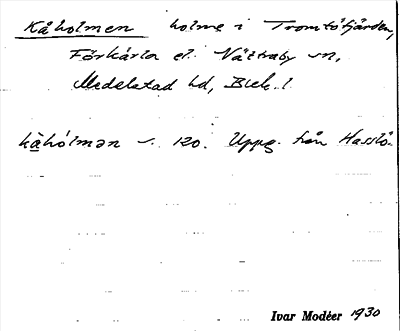 Kåholmen holme i Tromtöfjärden,
Förkärla el. Nättraby sn,
Medelstad hd, Blek. l.
kåhólmən 120. Uppg. från Hasslö.
Ivar Modéer 1930